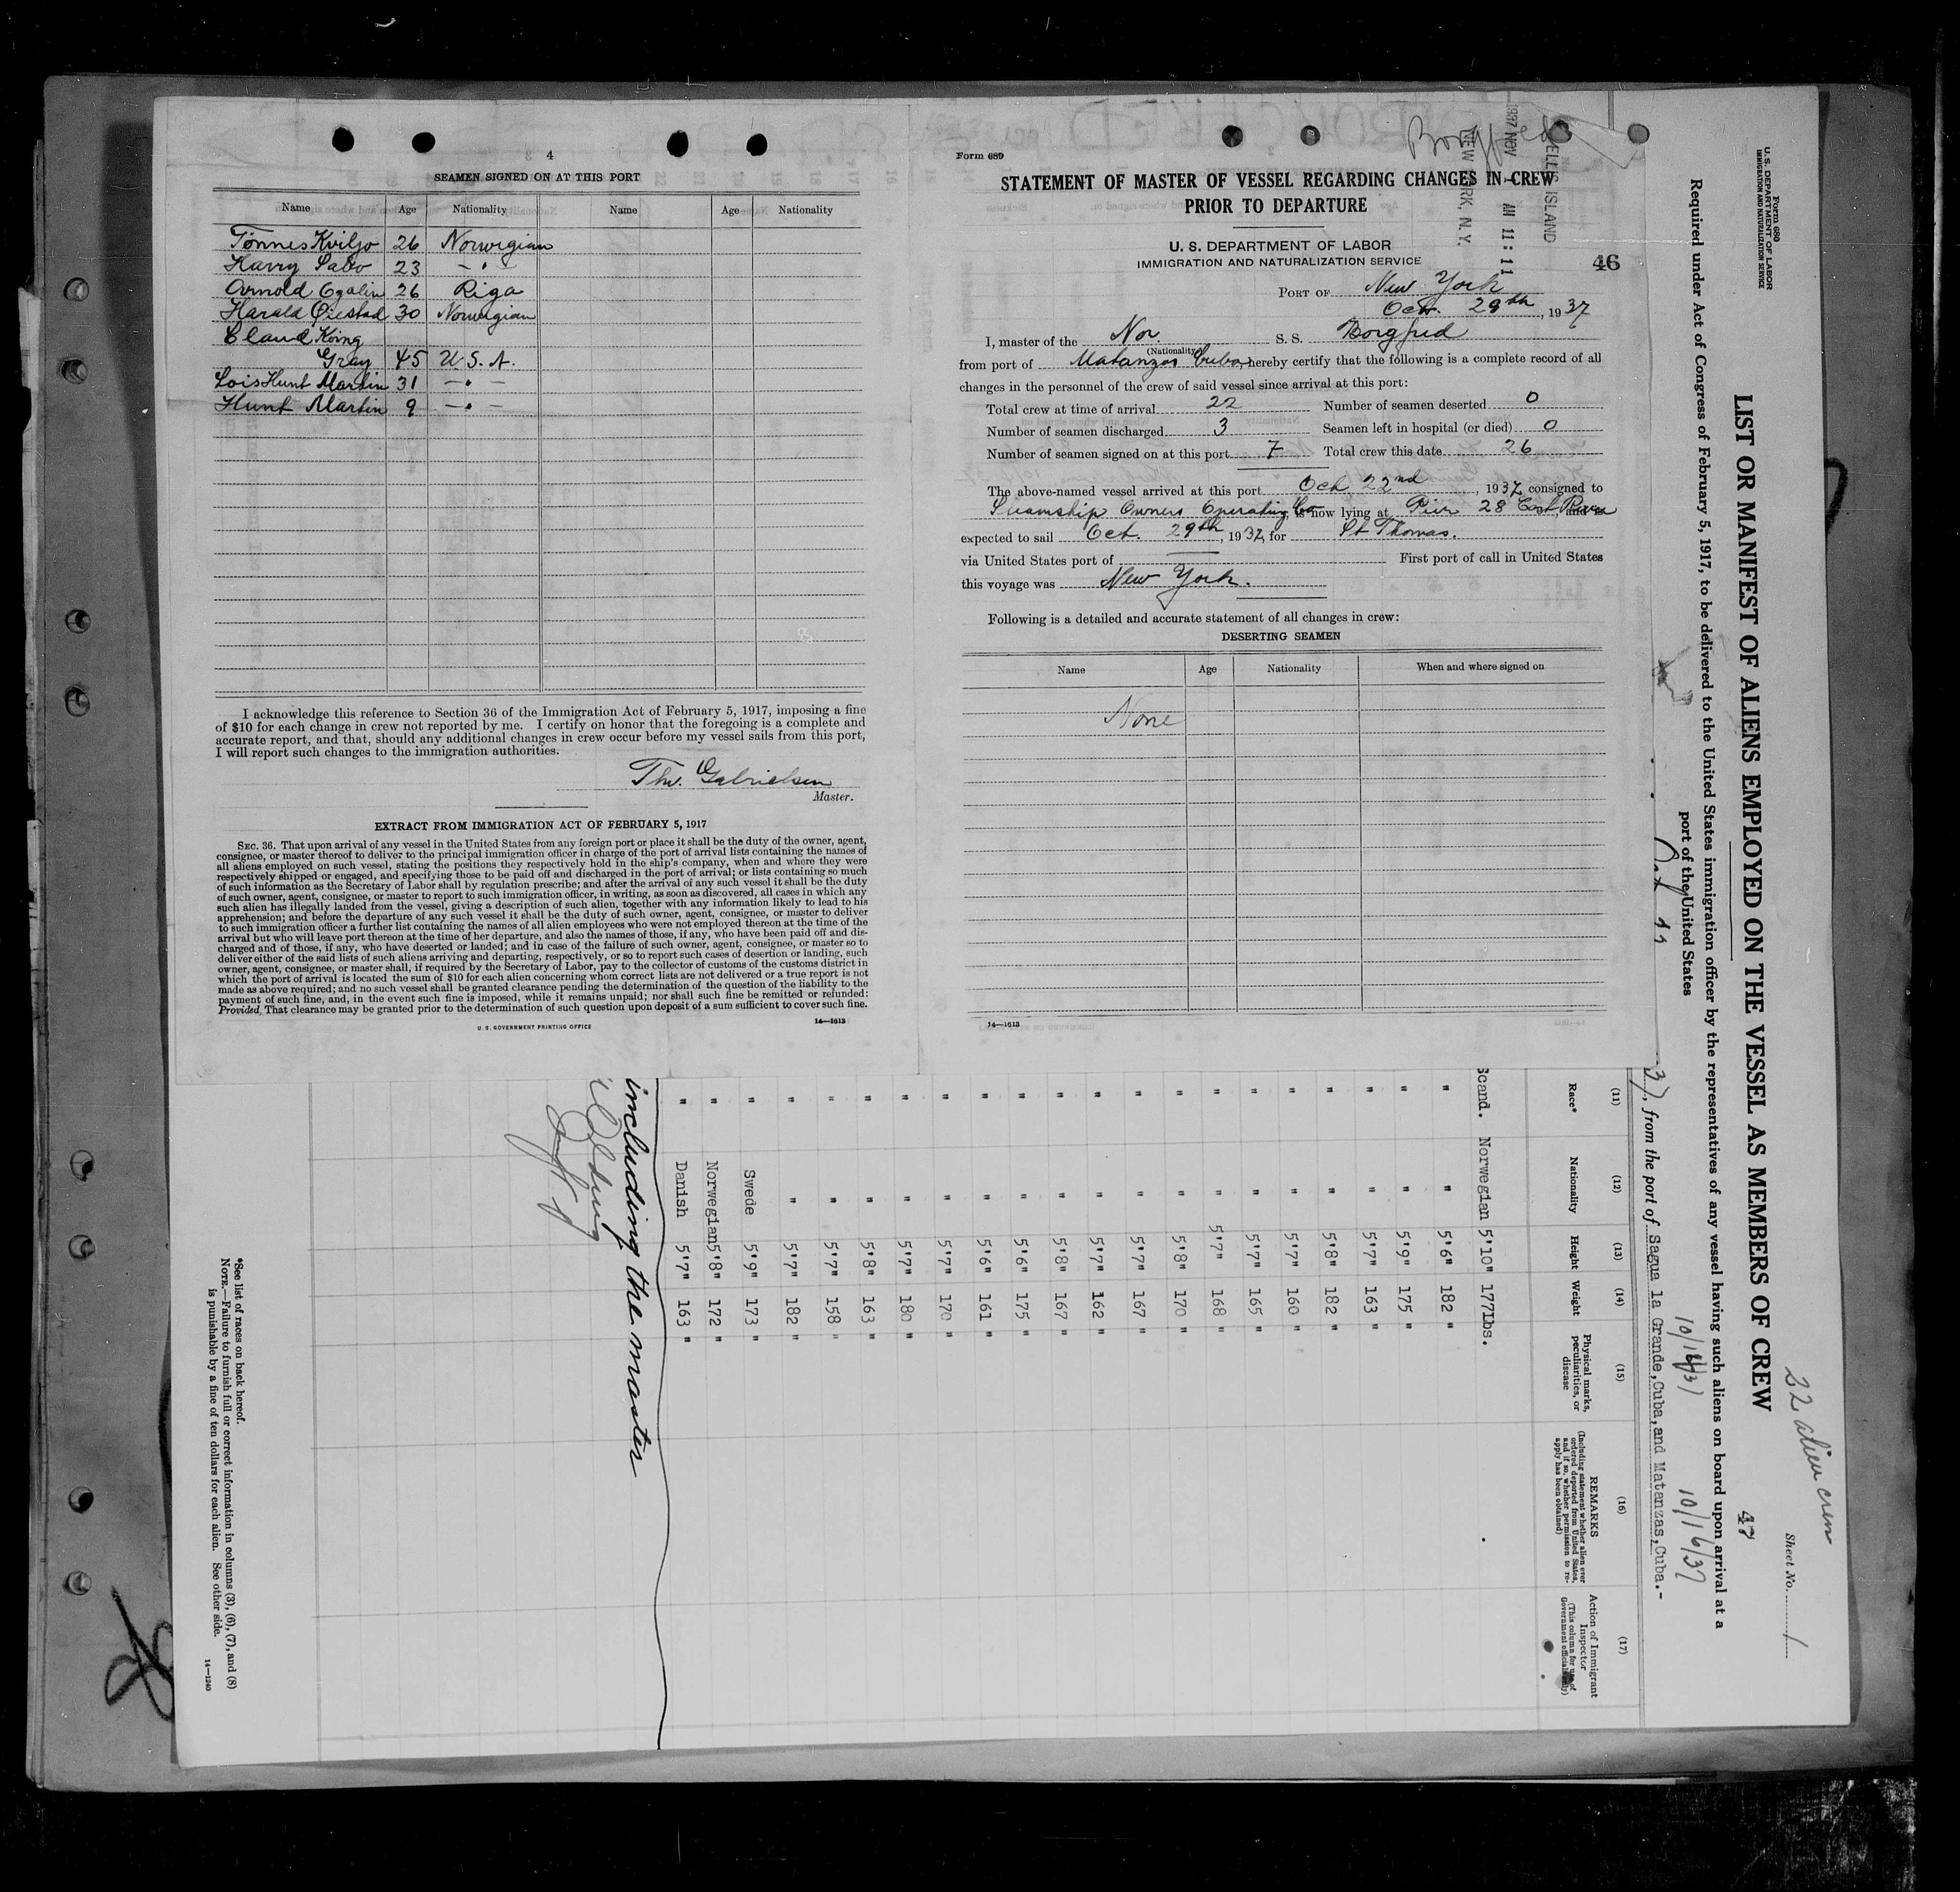 4
SEAMEN SIGNED ON AT THIS PORT
Name Age Nationality Name Age Nationality
Tönnes Kviljo 26 Norwigian
Harry Sabo 23 — " —
Arnold Ozolin 26 Riga
Harald Øiestad 30 Norwigian
Claud King
Gray 45 U.S.A.
Lois Hunt Martin 31 — " —
Hunt Martin 9 — " —
I acknowledge this reference to Section 36 of the Immigration Act of February 5, 1917, imposing a fine
of $10 for each change in crew not reported by me. I certify on honor that the foregoing is a complete and
accurate report, and that, should any additional changes in crew occur before my vessel sails from this port,
I will report such changes to the immigration authorities.
Thv. Gabrielsen
Master.
EXTRACT FROM IMMIGRATION ACT OF FEBRUARY 5, 1917
SEC. 36. That upon arrival of any vessel in the United States from any foreign port or place it shall be the duty of the owner, agent,
consignee, or master thereof to deliver to the principal immigration officer in charge of the port of arrival lists containing the names of
all aliens employed on such vessel, stating the positions they respectively hold in the ship's company, when and where they were
respectively shipped or engaged, and specifying those to be paid off and discharged in the port of arrival; or lists containing so much
of such information as the Secretary of Labor shall by regulation prescribe; and after the arrival of any such vessel it shall be the duty
of such owner, agent, consignee, or master to report to such immigration officer, in writing, as soon as discovered, all cases in which any
such alien has illegally landed from the vessel, giving a description of such alien, together with any information likely to lead to his
apprehension; and before the departure of any such vessel it shall be the duty of such owner, agent, consignee, or master to deliver
to such immigration officer a further list containing the names of all alien employees who were not employed thereon at the time of the
arrival but who will leave port thereon at the time of her departure, and also the names of those, if any, who have been paid off and dis-
charged and of those, if any, who have deserted or landed; and in case of the failure of such owner, agent, consignee, or master so to
deliver either of the said lists of such aliens arriving and departing, respectively, or so to report such cases of desertion or landing, such
owner, agent, consignee, or master shall, if required by the Secretary of Labor, pay to the collector of customs of the customs district in
which the port of arrival is located the sum of $10 for each alien concerning whom correct lists are not delivered or a true report is not
made as above required; and no such vessel shall be granted clearance pending the determination of the question of the liability to the
payment of such fine, and, in the event such fine is imposed, while it remains unpaid; nor shall such fine be remitted or refunded:
Provided, That clearance may be granted prior to the determination of such question upon deposit of a sum sufficient to cover such fine.
U. S. GOVERNMENT PRINTING OFFICE 14—1613
Form 689
ELLIS ISLAND
1937 NOV AM 11:11
NEW YORK, N.Y.
STATEMENT OF MASTER OF VESSEL REGARDING CHANGES IN CREW
PRIOR TO DEPARTURE
U. S. DEPARTMENT OF LABOR
IMMIGRATION AND NATURALIZATION SERVICE
46
PORT OF New York
Oct. 29th, 1937
I, master of the Nor. S. S. Borgfred
(Nationality)
from port of Matanzas Cuba, hereby certify that the following is a complete record of all
changes in the personnel of the crew of said vessel since arrival at this port:
Total crew at time of arrival 22 Number of seamen deserted 0
Number of seamen discharged 3 Seamen left in hospital (or died) 0
Number of seamen signed on at this port 7 Total crew this date 26
The above-named vessel arrived at this port Oct 22nd, 1937, consigned to
Steamship Owners Operating Co is now lying at Pier 28 East River and is
expected to sail Oct. 29th, 1937, for St Thomas.
via United States port of First port of call in United States
this voyage was New York.
Following is a detailed and accurate statement of all changes in crew:
DESERTING SEAMEN
Name Age Nationality When and where signed on
None
14—1613
Form 680
U. S. DEPARTMENT OF LABOR
IMMIGRATION AND NATURALIZATION SERVICE
22 alien crew
Sheet No. 1
LIST OR MANIFEST OF ALIENS EMPLOYED ON THE VESSEL AS MEMBERS OF CREW
47
Required under Act of Congress of February 5, 1917, to be delivered to the United States immigration officer by the representatives of any vessel having such aliens on board upon arrival at a
port of the United States
10/16/37
, from the port of Sagua la Grande, Cuba, and Matanzas, Cuba.-
(11) (12) (13) (14) (15) (16) (17)
Race* Nationality Height Weight Physical marks, peculiarities, or disease REMARKS (Including statement whether alien ever ordered deported from United States, and if so, whether permission to reapply has been obtained) Action of Immigrant Inspector (This column for use of Government officials only)
Scand. Norwegian 5'10" 177Lbs.
" " 5'6" 182 "
" " 5'9" 175 "
" " 5'7" 163 "
" " 5'8" 182 "
" " 5'7" 160 "
" " 5'7" 165 "
" " 5'7" 168 "
" " 5'8" 170 "
" " 5'7" 167 "
" " 5'7" 162 "
" " 5'8" 167 "
" " 5'6" 175 "
" " 5'6" 161 "
" " 5'7" 170 "
" " 5'7" 180 "
" " 5'8" 163 "
" " 5'7" 158 "
" " 5'7" 182 "
" Swede 5'9" 173 "
" Norwegian 5'8" 172 "
" Danish 5'7" 163 "
including the master
*See list of races on back hereof.
NOTE.—Failure to furnish full or correct information in columns (3), (6), (7), and (8)
is punishable by a fine of ten dollars for each alien. See other side.
14—1240